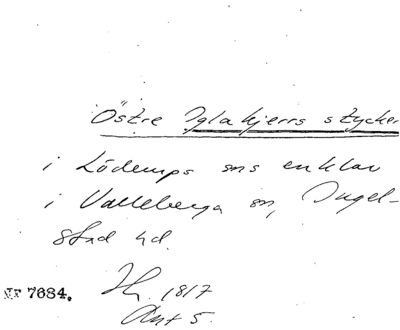 Östre Iglakjerrs stycken
i Löderups sns enklav
i Valleberga sn, Ingel-
stad hd.
NR 7684.
1817
Akt 5.